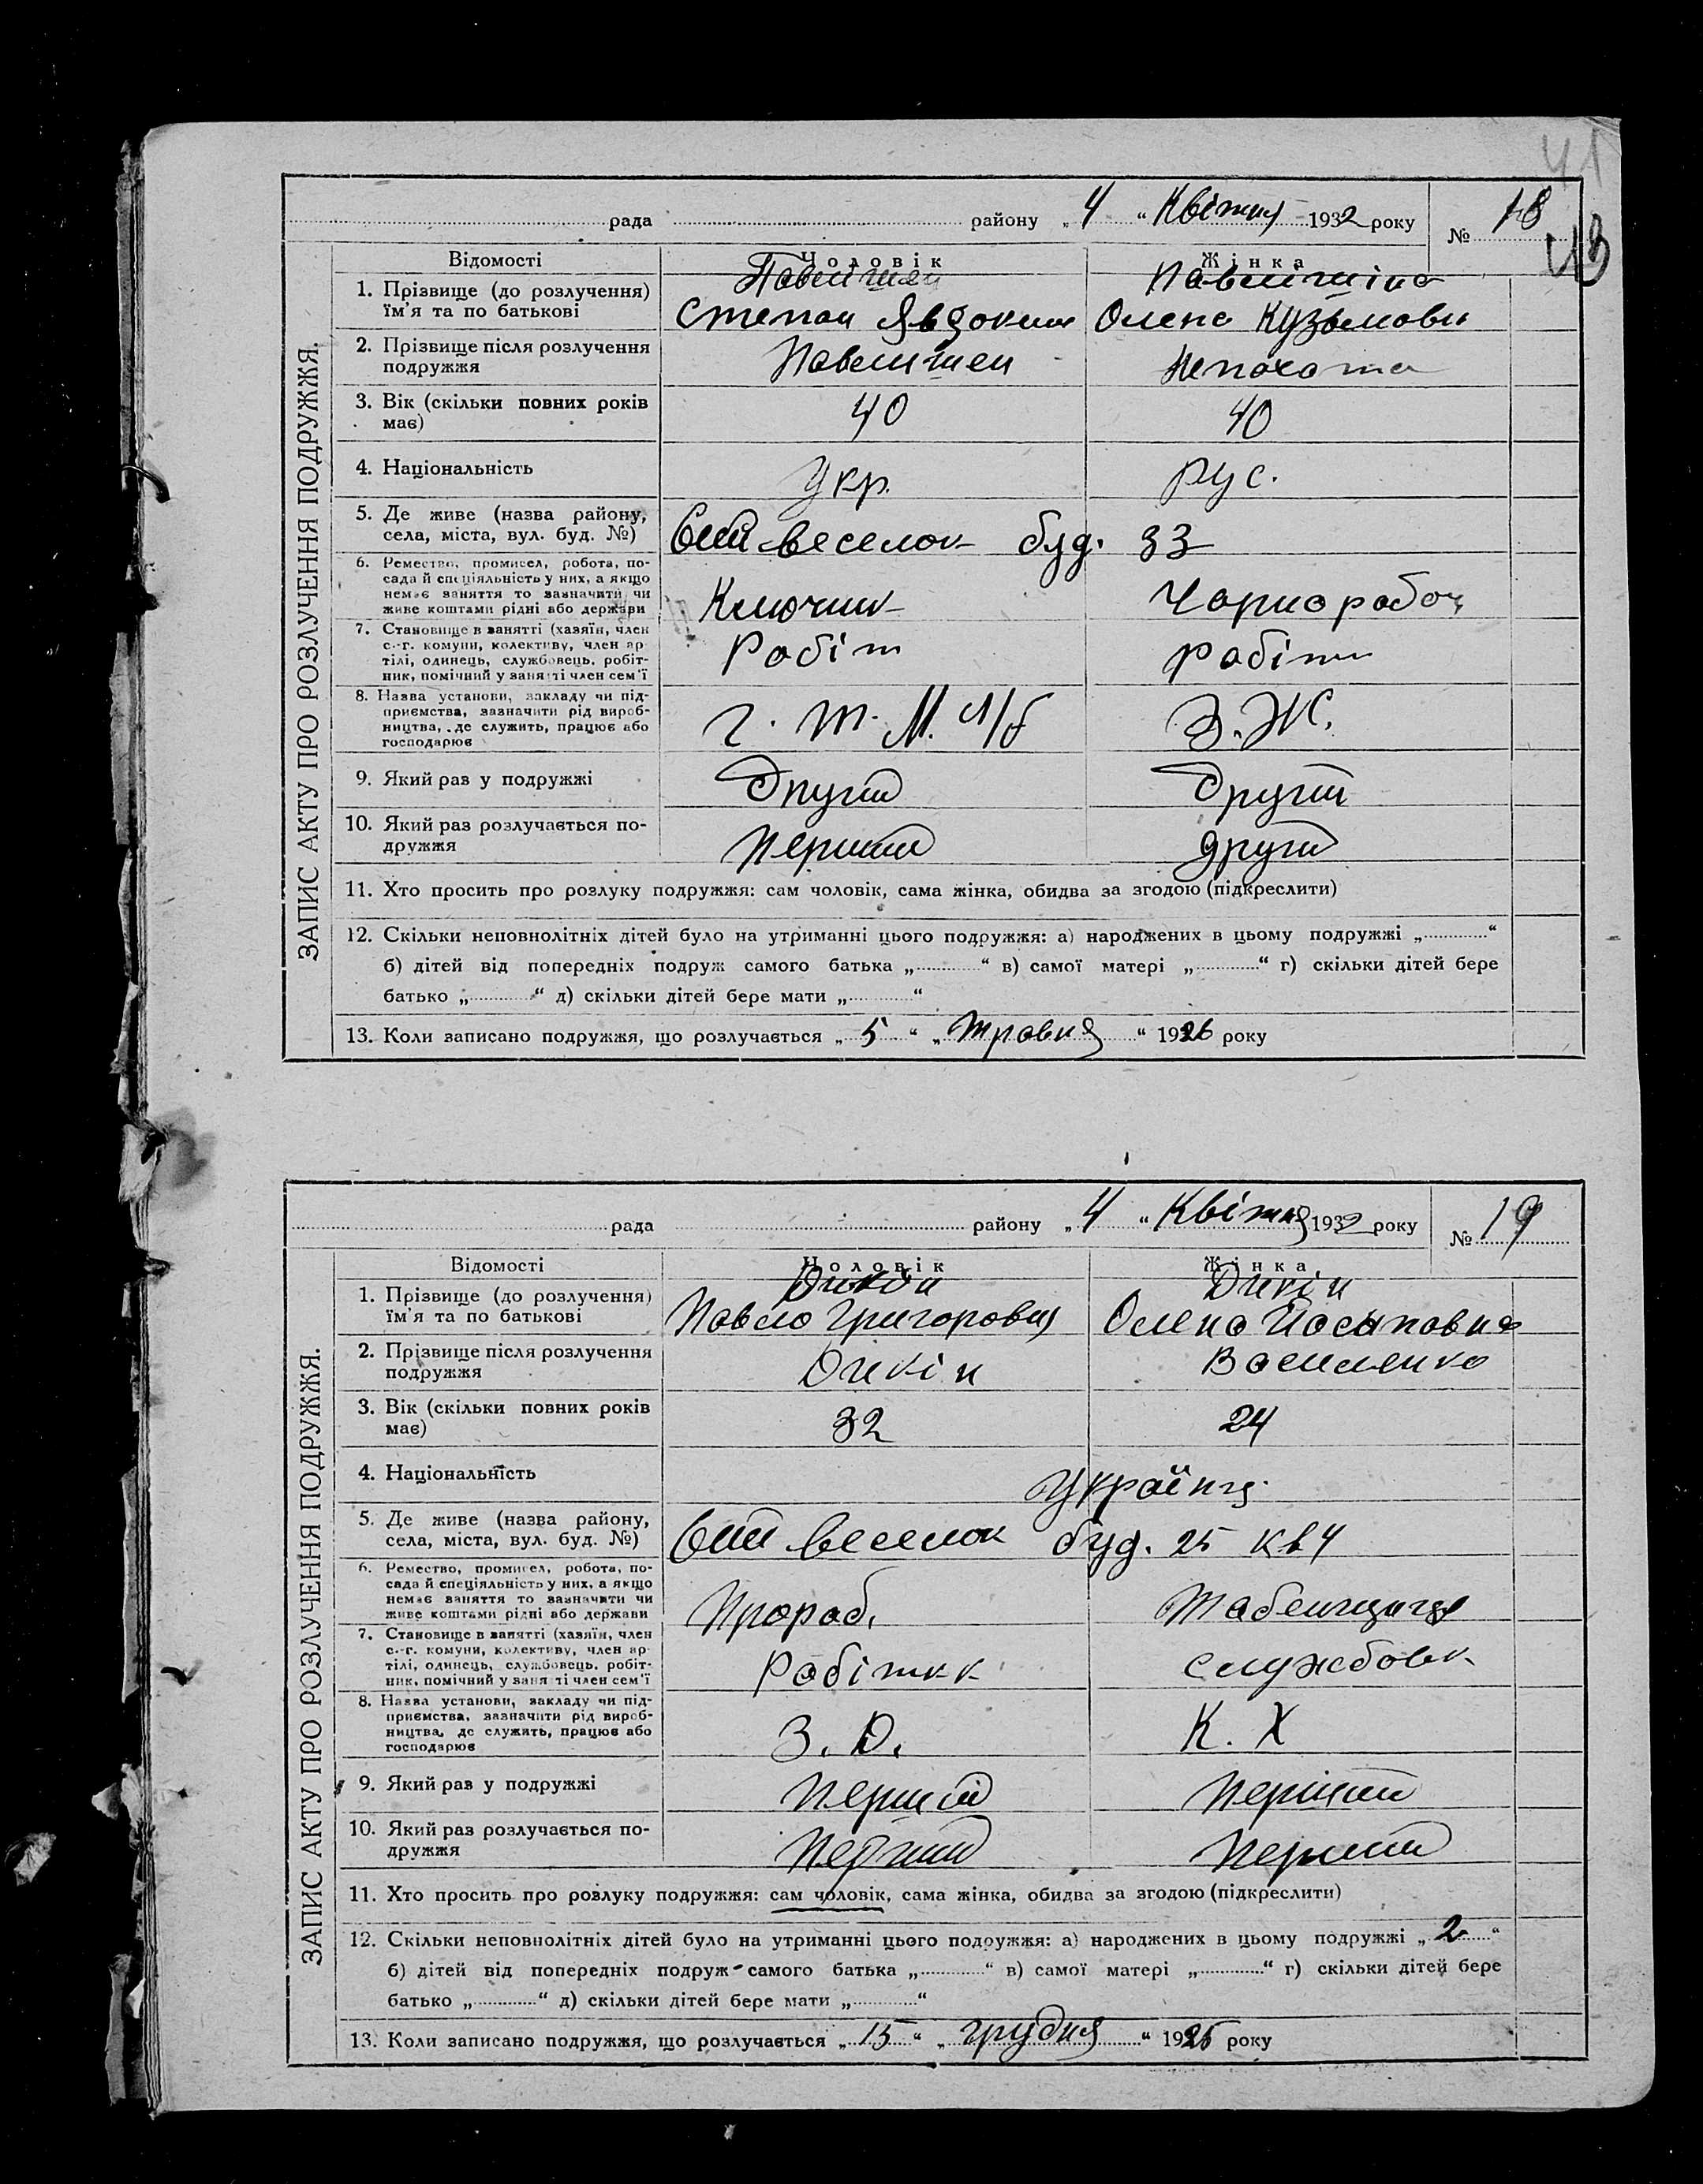 41
рада района „4“ Квітня 1932 року № 18
43
Відомості Чоловік Жінка
1. Прізвище (до розлучення) їм'я та по батькові
Степан Явдоким Олена Кузьмовн
2. Прізвище після розлучення подружжя Непохота
3. Вік (скільки повних років має) 40 40
4. Національність Укр. Рус.
5. Де живе (назва району, села, міста, вул. буд. №) веселок буд. 33
6. Ремество, промисел, робота, посада й спеціяльність у них, а якщо немає заняття то зазначити чи живе коштами рідні або держави Ключник Чорнороboч
7. Становище в занятті (хазяїн, член с.-г. комуни, колективу, член артілі, одинець, службовець, робітник, помічний у занятті член сем'ї Робітн робітн
8. Назва установи, закладу чи підприємства, зазначити рід виробництва, де служить, працює або господарює Г. Т. М. З. Ж.
9. Який раз у подружжі Другий Другий
10. Який раз розлучається подружжя Перший другий
11. Хто просить про розлуку подружжя: сам чоловік, сама жінка, обидва за згодою (підкреслити)
12. Скільки неповнолітніх дітей було на утриманні цього подружжя: а) народжених в цьому подружжі „ “
б) дітей від попередніх подруж самого батька „ “ в) самої матері „ “ г) скільки дітей бере
батько „ “ д) скільки дітей бере мати „ “
13. Коли записано подружжя, що розлучається „5“ „Травня“ 1926 року
ЗАПИС АКТУ ПРО РОЗЛУЧЕННЯ ПОДРУЖЖЯ.
рада району „4“ Квітня 1932 року № 19
Відомості Чоловік Жінка
Дикій Дикін
1. Прізвище (до розлучення) їм'я та по батькові Павло Григорович Олена Йосиповна
2. Прізвище після розлучення подружжя Дикін Василенко
3. Вік (скільки повних років має) 32 24
4. Національність Українц
5. Де живе (назва району, села, міста, вул. буд. №) веселок буд. 25 кв 4
6. Ремество, промисел, робота, посада й спеціяльність у них, а якщо немає заняття то зазначити чи живе коштами рідні або держави Прораб. Табельщиця
7. Становище в занятті (хазяїн, член с.-г. комуни, колективу, член артілі, одинець, службовець, робітник, помічний у занятті член сем'ї Робітнк службовк
8. Назва установи, закладу чи підприємства, зазначити рід виробництва, де служить, працює або господарює З. Д. К. Х
9. Який раз у подружжі Перший Перший
10. Який раз розлучається подружжя Перший Перший
11. Хто просить про розлуку подружжя: сам чоловік, сама жінка, обидва за згодою (підкреслити)
12. Скільки неповнолітніх дітей було на утриманні цього подружжя: а) народжених в цьому подружжі „2“
б) дітей від попередніх подруж самого батька „ “ в) самої матері „ “ г) скільки дітей бере
батько „ “ д) скільки дітей бере мати „ “
13. Коли записано подружжя, що розлучається „15“ „грудня“ 1925 року
ЗАПИС АКТУ ПРО РОЗЛУЧЕННЯ ПОДРУЖЖЯ.